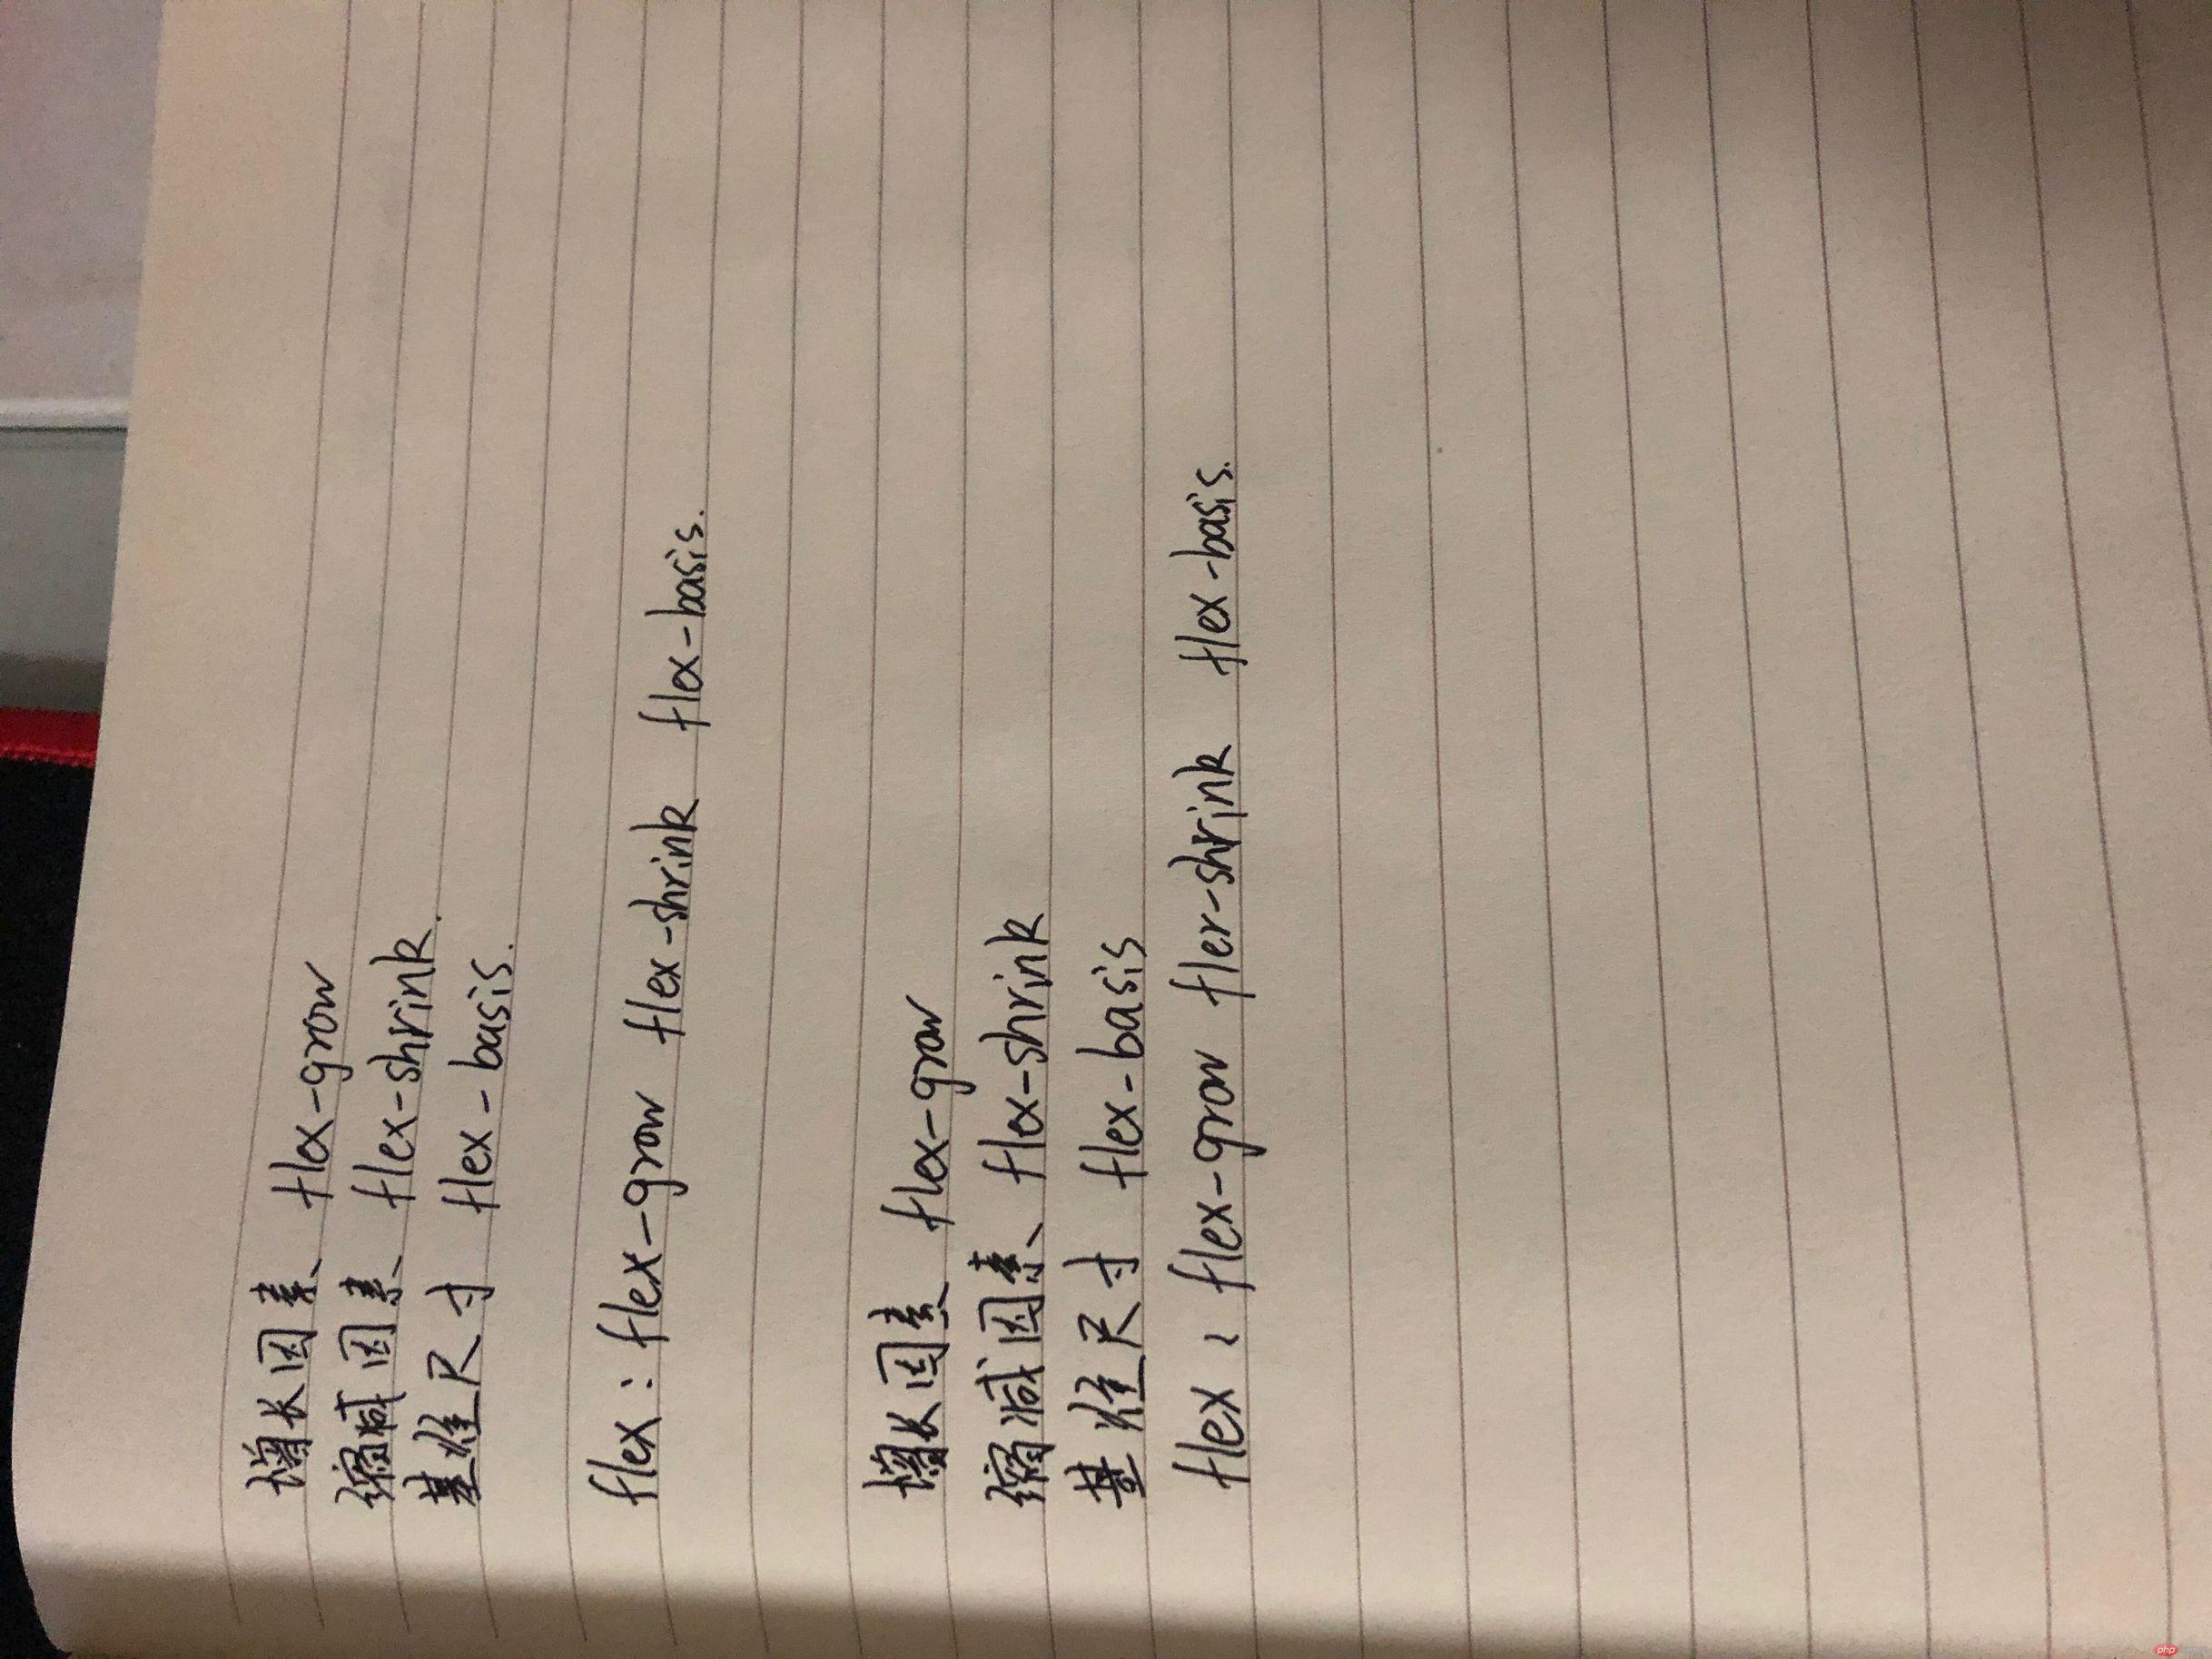 增长因素 flex-grow
缩减因素 flex-shrink.
基准尺寸 flex-basis.
flex: flex-grow flex-shrink flex-basis.
增长因素 flex-grow
缩减因素 flex-shrink
基准尺寸 flex-basis
flex: flex-grow flex-shrink flex-basis.
php